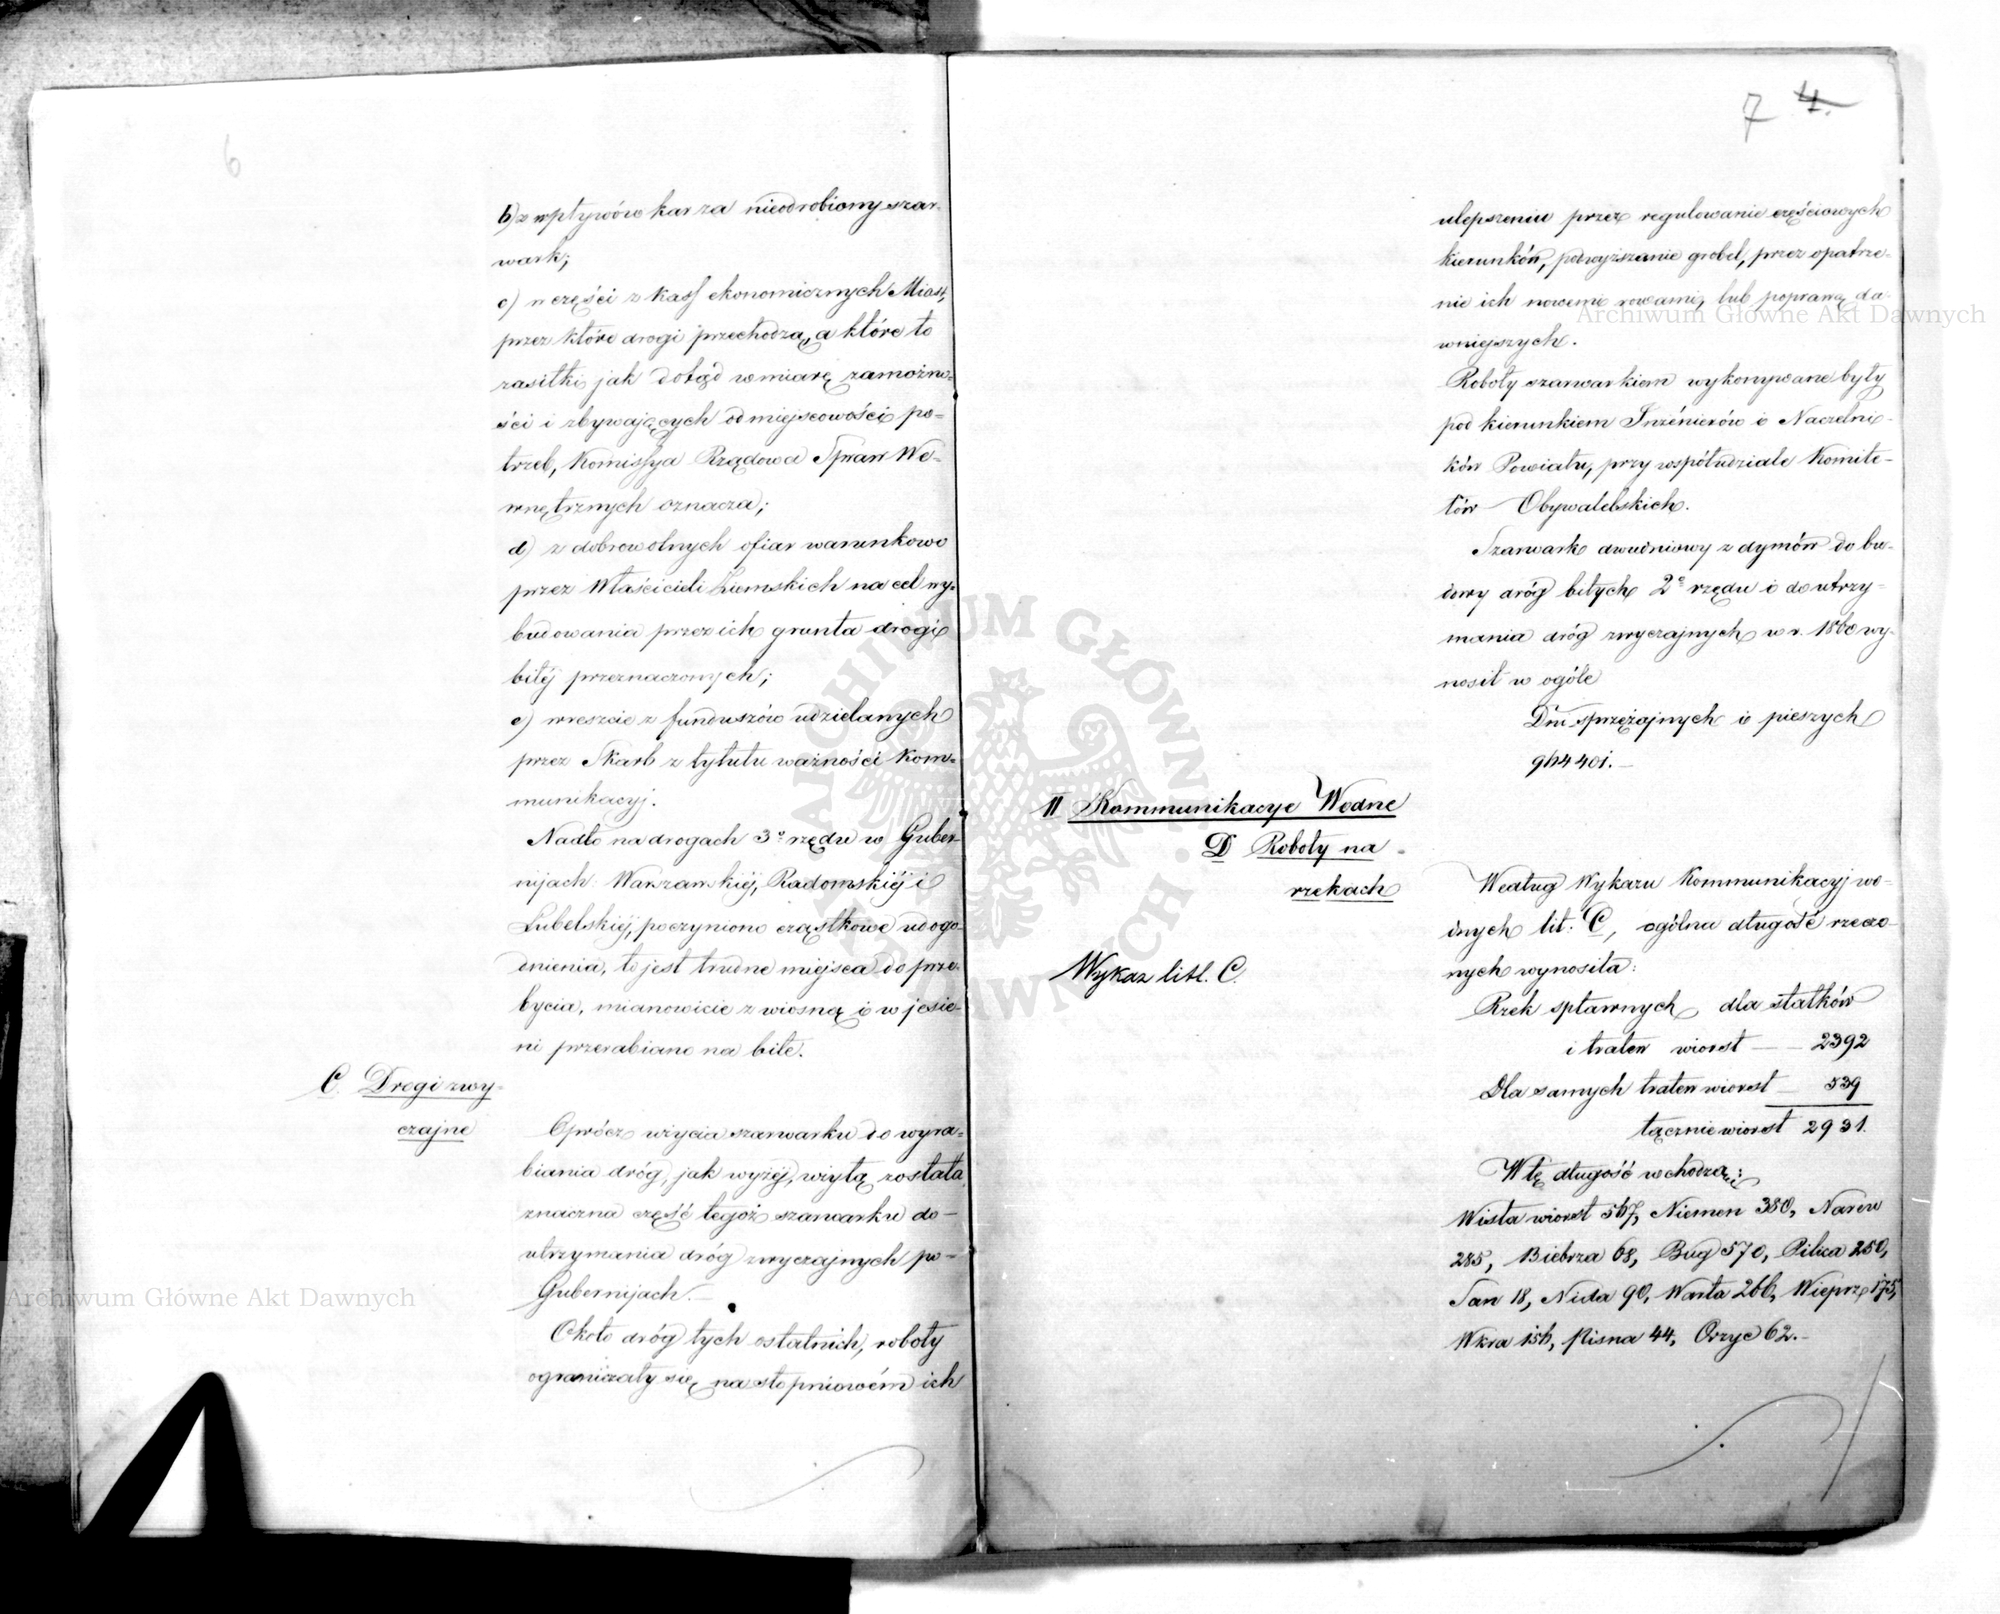 6
b) z wpływów kar za nieodrobiony szar-
wark;
c) w części z kass ekonomicznych Miast,
przez które drogi przechodzą, a które to
zasiłki, jak dotąd w miarę zamożno-
ści i zbywających od miejscowości po-
trzeb, Komissya Rządowa Spraw We-
wnętrznych oznacza;
d) z dobrowolnych ofiar warunkowo
przez Właścicieli Ziemskich na cel wy-
budowania przez ich grunta drogi
bitéj przeznaczonych;
e) wreszcie z funduszów udzielanych
przez Skarb z tytułu ważności Kom-
munikacyj.
Nadto na drogach 3º rzędu w Guber-
nijach: Warszawskiéj, Radomskiéj i
Lubelskiéj, poczyniono cząstkowe udogo-
dnienia, to jest trudne miejsca do prze-
bycia, mianowicie z wiosną i w jesie-
ni przerabiano na bite.
C. Drogi zwy-
czajne
Oprócz użycia szarwarku do wyra-
biania dróg, jak wyżéj, użytą została
znaczna część tegoż szarwarku do
utrzymania dróg zwyczajnych po
Gubernijach.
Około dróg tych ostatnich, roboty
ograniczały się, na stopniowém ich
7 4.
ulepszeniu przez regulowanie częściowych
kierunków, podwyższanie grobel, przez opatrze-
nie ich nowemi rowami, lub poprawą da-
wniejszych.
Roboty szarwarkiem wykonywane były
pod kierunkiem Inżénierów i Naczelni-
ków Powiatu, przy współudziale Komite-
tów Obywatelskich.
Szarwark dwudniowy z dymów do bu-
dowy dróg bitych 2º rzędu i do utrzy-
mania dróg zwyczajnych w r. 1860 wy-
nosił w ogóle
Dni sprzężajnych i pieszych
944401.
II Kommunikacye Wodne
D Roboty na
rzekach
Wykaz litt. C.
Według Wykazu Kommunikacyj wo-
dnych lit: C, ogólna długość rzeczo-
nych wynosiła:
Rzek spławnych dla statków
i tratew wiorst — 2392
Dla samych tratew wiorst 539
łącznie wiorst 2931.
W tę długość wchodzą:
Wisła wiorst 567, Niemen 380, Narew
285, Biebrza 68, Bug 570, Pilica 250,
San 18, Nida 90, Warta 266, Wieprz 175,
Wkra 156, Pisna 44, Orzyc 62.
Archiwum Główne Akt Dawnych
Archiwum Główne Akt Dawnych
ARCHIWUM GŁÓWNE AKT DAWNYCH